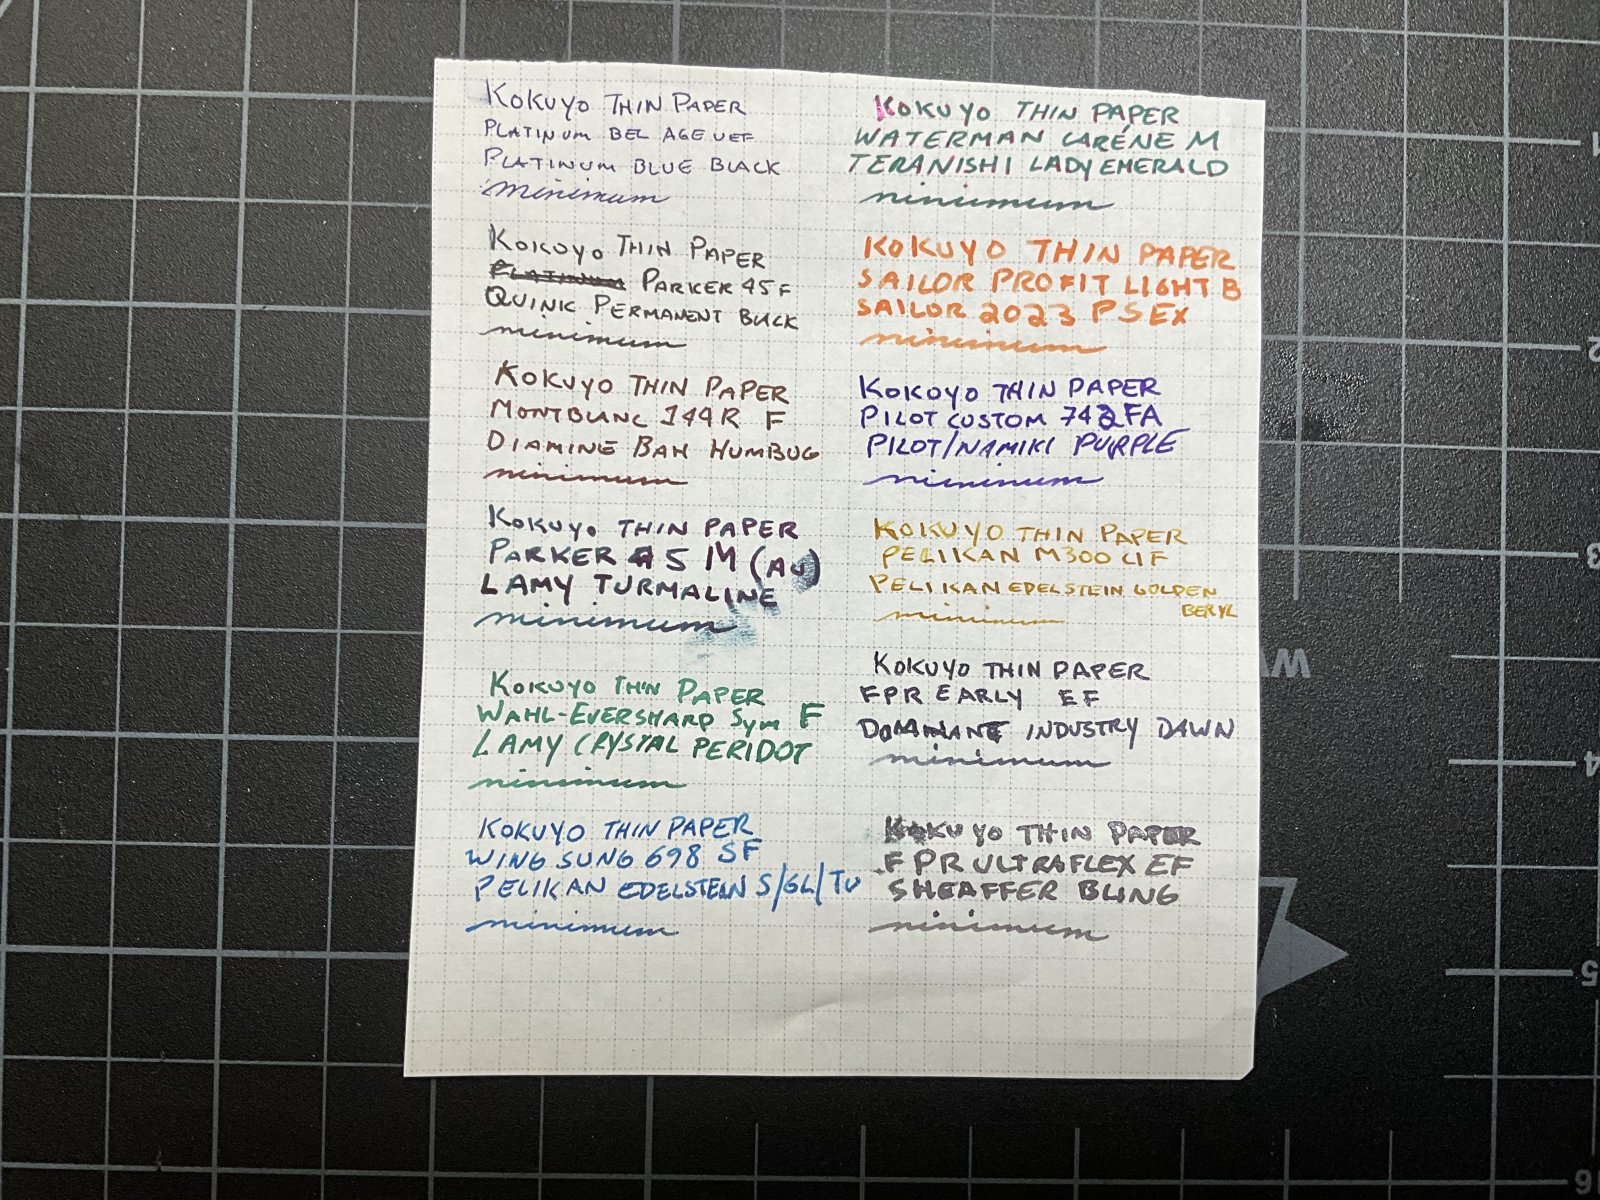 KOKUYO THIN PAPER
PLATINUM BEL AGE UEF
PLATINUM BLUE BLACK
minimum
KOKUYO THIN PAPER
PLATINUM PARKER 45 F
QUINK PERMANENT BLACK
minimum
KOKUYO THIN PAPER
MONTBLANC 144R F
DIAMINE BAH HUMBUG
minimum
KOKUYO THIN PAPER
PARKER 45 M (AU)
LAMY TURMALINE
minimum
KOKUYO THIN PAPER
WAHL-EVERSHARP SYM F
LAMY CRYSTAL PERIDOT
minimum
KOKUYO THIN PAPER
WING SUNG 698 SF
PELIKAN EDELSTEIN S/GL/TU
minimum
KOKUYO THIN PAPER
WATERMAN CARÉNE M
TERANISHI LADY EMERALD
minimum
KOKUYO THIN PAPER
SAILOR PROFIT LIGHT B
SAILOR 2023 PSEX
minimum
KOKOYO THIN PAPER
PILOT CUSTOM 742 FA
PILOT/NAMIKI PURPLE
minimum
KOKUYO THIN PAPER
PELIKAN M300 CIF
PELIKAN EDELSTEIN GOLDEN
BERYL
minimum
KOKUYO THIN PAPER
FPR EARLY EF
INDUSTRY DAWN
minimum
KOKUYO THIN PAPER
FPR ULTRAFLEX EF
SHEAFFER BLING
minimum
1
2
3
4
5
16